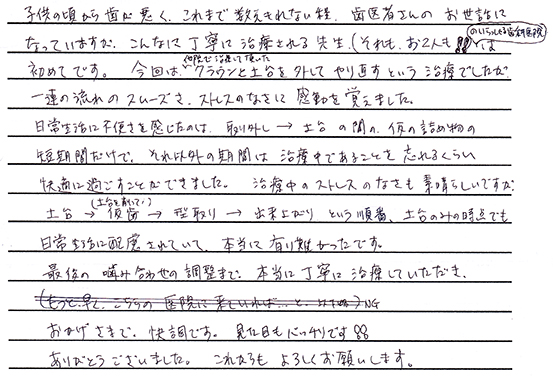 子供の頃から歯が悪く、これまで数えきれない程、歯医者さんのお世話に
なっていますが、こんなに丁寧に治療される先生（それも、お2人も!!）は
のいらっしゃる歯科医院
初めてです。 今回は、クラウンと土台を外してやり直すという治療でしたが
他院で治療して頂いた
一連の流れのスムーズさ、ストレスのなさに感動を覚えました。
日常生活に不便さを感じたのは、取り外し→土台の間の、仮の詰め物の
短期間だけで、それ以外の期間は治療中であることを忘れるくらい
快適に過ごすことができました。 治療中のストレスのなさも素晴らしいですが
土台→仮歯→型取り→出来上がりという順番、土台のみの時点でも
日常生活に配慮されていて、本当に有り難かったです。
最後の噛み合わせの調整まで、本当に丁寧に治療していただき、
（もっと早く、こちらの医院に来ていれば…と、）NG
おかげさまで、快調です。 見た目もバッチリです!!
ありがとうございました。 これからもよろしくお願いします。